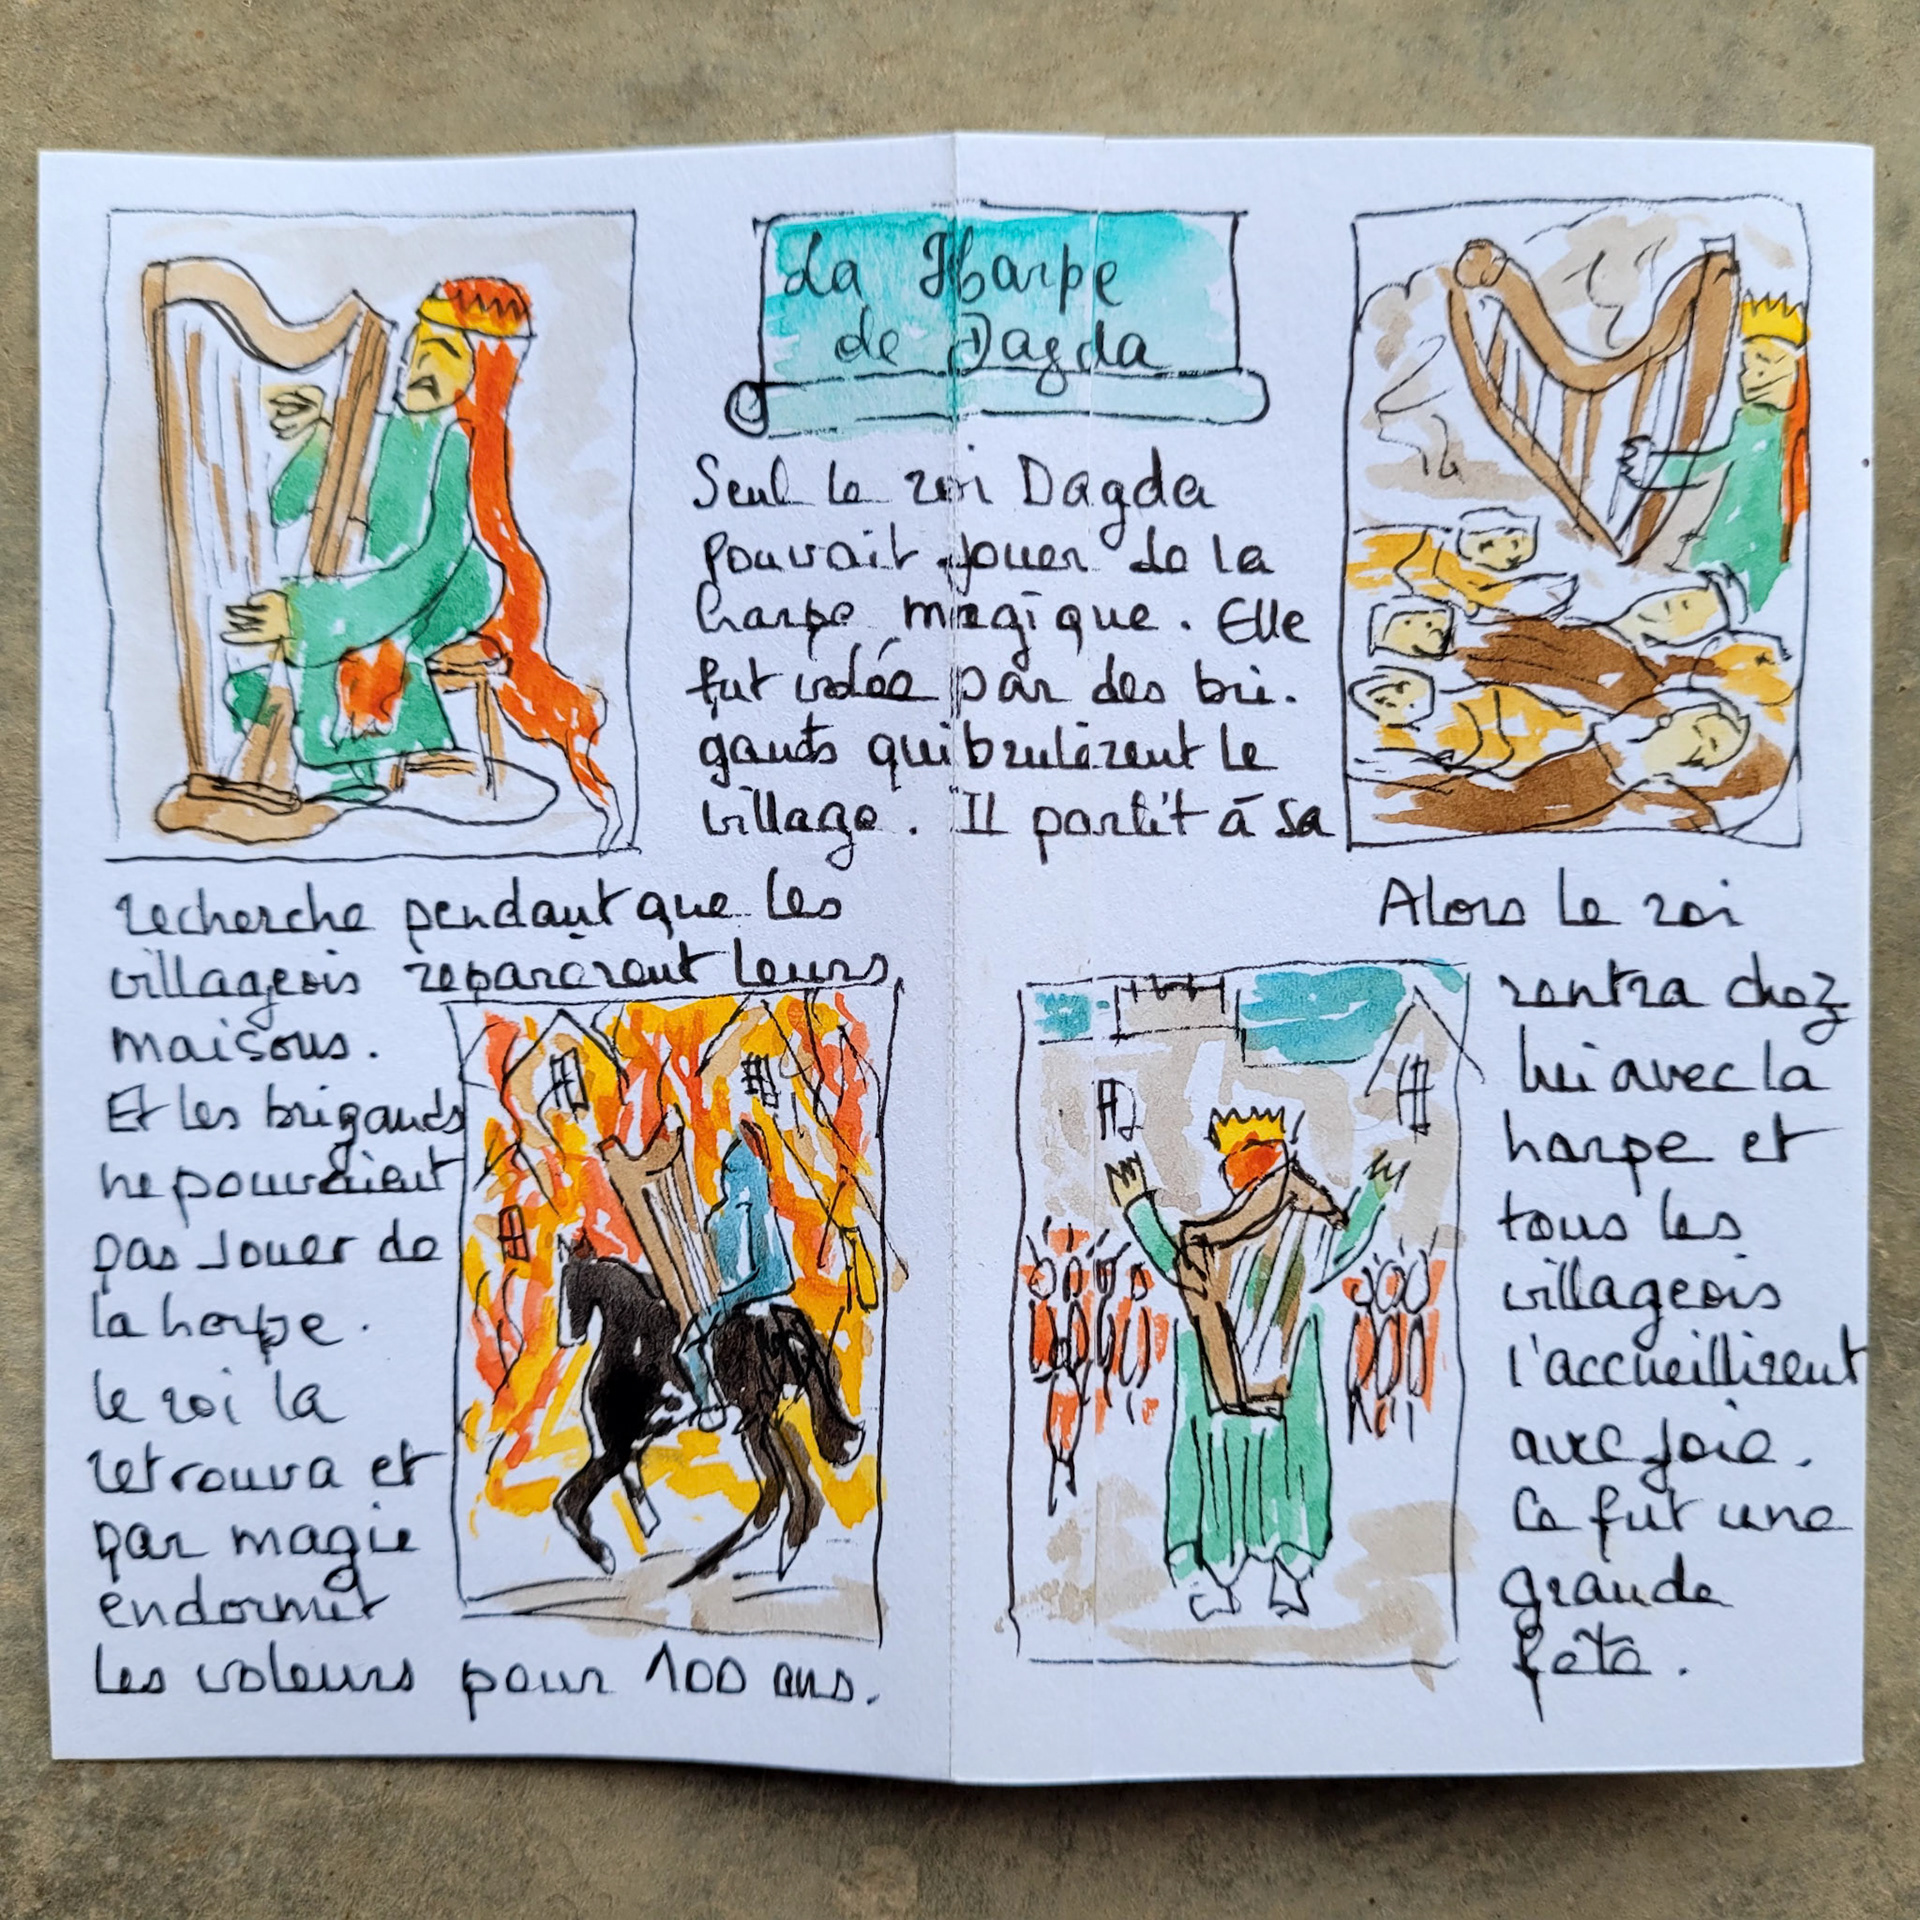 La Harpe
de Dagda
Seul le roi Dagda
pouvait jouer de la
harpe magique. Elle
fut volée par des bri-
gands qui brulèrent le
village. Il partit à sa
recherche pendant que les
villageois reparèrent leurs
maisons.
Et les brigands
ne pouvaient
pas jouer de
la harpe.
le roi la
retrouva et
par magie
endormit
les voleurs pour 100 ans.
Alors le roi
rentra chez
lui avec la
harpe et
tous les
villageois
l'accueillirent
avec joie.
Ce fut une
grande
fête.